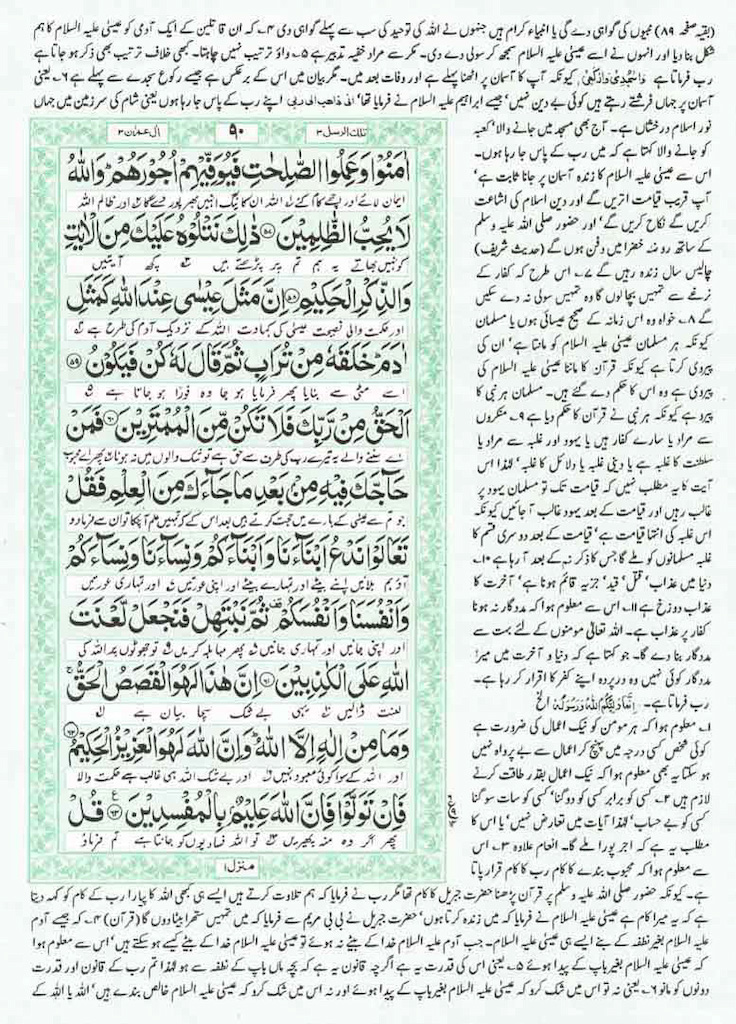 (بقیہ صفحہ ۸۹) نبیوں کی گواہی دے گی یا انبیاء کرام ہیں جنہوں نے اللہ کی توحید کی سب سے پہلے گواہی دی ۴۔ کہ ان قاتلین کے ایک آدمی کو عیسیٰ علیہ السلام کا ہم
شکل بنا دیا اور انہوں نے اسے عیسیٰ علیہ السلام سمجھ کر سولی دے دی۔ مکر سے مراد خفیہ تدبیر ہے ۵۔ واؤ ترتیب نہیں چاہتا۔ کبھی خلاف ترتیب بھی ذکر ہو جاتا ہے
رب فرماتا ہے وَاسْجُدِیْ وَارْکَعِیْ کیونکہ آپ کا آسمان پر اٹھنا پہلے ہے اور وفات بعد میں۔ مگر بیان میں اس کے برعکس ہے جیسے رکوع سجدے سے پہلے ہے ۶۔ یعنی
آسمان پر جہاں فرشتے رہتے ہیں کوئی بے دین نہیں' جیسے ابراہیم علیہ السلام نے فرمایا تھا' انی ذاھب الی ربی اپنے رب کے پاس جا رہا ہوں یعنی شام کی سرزمین میں جہاں
نور اسلام درخشاں ہے۔ آج بھی مسجد میں جانے والا' کعبہ
کو جانے والا کہتا ہے کہ میں رب کے پاس جا رہا ہوں۔
اس سے عیسیٰ علیہ السلام کا زندہ آسمان پر جانا ثابت ہے'
آپ قریب قیامت اتریں گے اور دین اسلام کی اشاعت
کریں گے نکاح کریں گے' اور حضور صلی اللہ علیہ وسلم
کے ساتھ روضہ خضرا میں دفن ہوں گے (حدیث شریف)
چالیس سال زندہ رہیں گے ۷۔ اس طرح کہ کفار کے
نرغے سے تمہیں بچا لوں گا وہ تمہیں سولی نہ دے سکیں
گے ۸۔ خواہ وہ اس زمانہ کے صحیح عیسائی ہوں یا مسلمان
کیونکہ ہر مسلمان عیسیٰ علیہ السلام کو مانتا ہے' ان کی
پیروی کرتا ہے کیونکہ قرآن کا ماننا عیسیٰ علیہ السلام کی
پیروی ہے وہ اس کا حکم دے گئے ہیں۔ مسلمان ہر نبی کا
پیرو ہے کیونکہ ہر نبی نے قرآن کا حکم دیا ہے ۹۔ منکروں
سے مراد یا سارے کفار ہیں یا یہود اور غلبہ سے مراد یا
سلطنت کا غلبہ ہے یا دینی غلبہ یا دلائل کا غلبہ' لہٰذا اس
آیت کا یہ مطلب نہیں کہ قیامت تک تو مسلمان یہود پر
غالب رہیں اور قیامت کے بعد یہود غالب آ جائیں کیونکہ
اس غلبہ کی انتہا قیامت ہے' قیامت کے بعد دوسری قسم کا
غلبہ مسلمانوں کو ملے گا جس کا ذکر نہ کے بعد آ رہا ہے ۱۰۔
دنیا میں عذاب' قتل' قید' جزیہ قائم ہونا ہے' آخرت کا
عذاب دوزخ ہے ۱۱۔ اس سے معلوم ہوا کہ مددگار نہ ہونا
کفار پر عذاب ہے۔ اللہ تعالیٰ مومنوں کے لئے بہت سے
مددگار بنا دے گا۔ جو کہتا ہے کہ دنیا و آخرت میں میرا
مددگار کوئی نہیں وہ درپردہ اپنے کفر کا اقرار کر رہا ہے۔
رب فرماتا ہے۔ اِنَّمَا وَلِیُّکُمُ اللّٰہُ وَرَسُوْلُہٗ الخ
۱۔ معلوم ہوا کہ ہر مومن کو نیک اعمال کی ضرورت ہے
کوئی شخص کسی درجہ میں پہنچ کر اعمال سے بے پرواہ نہیں
ہو سکتا یہ بھی معلوم ہوا کہ نیک اعمال بقدر طاقت کرنے
لازم ہیں ۲۔ کسی کو برابر کسی کو دوگنا' کسی کو سات سو گنا
کسی کو بے حساب' لہٰذا آیات میں تعارض نہیں' یا اس کا
مطلب یہ ہے کہ اجر پورا ملے گا۔ انعام علاوہ ۳۔ اس
سے معلوم ہوا کہ محبوب بندہ کا کام رب کا کام قرار پاتا
تلك الرسل ۳
۹۰
اٰل عمرٰن ۳
اٰمَنُوْا وَعَمِلُوا الصّٰلِحٰتِ فَیُوَفِّیْهِمْ اُجُوْرَهُمْ ؕ وَاللّٰهُ
ایمان لائے اور اچھے کام کئے لہ اللہ ان کا نیگ انہیں بھرپور دے گا ؂ اور ظالم اللہ
لَا یُحِبُّ الظّٰلِمِیْنَ ﴿۵۷﴾ ذٰلِكَ نَتْلُوْهُ عَلَیْكَ مِنَ الْاٰیٰتِ
کو نہیں بھاتے یہ ہم تم پر پڑھتے ہیں ؂ کچھ آیتیں
وَالذِّكْرِ الْحَكِیْمِ ﴿۵۸﴾ اِنَّ مَثَلَ عِیْسٰی عِنْدَ اللّٰهِ كَمَثَلِ
اور حکمت والی نصیحت عیسیٰ کی کہاوت اللہ کے نزدیک آدم کی طرح ہے ؂
اٰدَمَ ؕ خَلَقَهٗ مِنْ تُرَابٍ ثُمَّ قَالَ لَهٗ كُنْ فَیَكُوْنُ ﴿۵۹﴾
اسے مٹی سے بنایا پھر فرمایا ہو جا وہ فورًا ہو جاتا ہے ؂
اَلْحَقُّ مِنْ رَّبِّكَ فَلَا تَكُنْ مِّنَ الْمُمْتَرِیْنَ ﴿۶۰﴾ فَمَنْ
اے سننے والے یہ تیرے رب کی طرف سے حق ہے تو شک والوں میں نہ ہونا ؂ پھر اے محبوب
حَآجَّكَ فِیْهِ مِنْۢ بَعْدِ مَا جَآءَكَ مِنَ الْعِلْمِ فَقُلْ
جو تم سے عیسیٰ کے بارے میں حجت کریں بعد اس کے کہ تمہیں علم آ چکا تو ان سے فرما دو
تَعَالَوْا نَدْعُ اَبْنَآءَنَا وَاَبْنَآءَكُمْ وَنِسَآءَنَا وَنِسَآءَكُمْ
آؤ ہم بلائیں اپنے بیٹے اور تمہارے بیٹے اور اپنی عورتیں ؂ اور تمہاری عورتیں
وَاَنْفُسَنَا وَاَنْفُسَكُمْ ۫ ثُمَّ نَبْتَهِلْ فَنَجْعَلْ لَّعْنَتَ
اور اپنی جانیں اور تمہاری جانیں ؂ پھر مباہلہ کریں ؂ تو جھوٹوں پر اللہ کی
اللّٰهِ عَلَی الْكٰذِبِیْنَ ﴿۶۱﴾ اِنَّ هٰذَا لَهُوَ الْقَصَصُ الْحَقُّ ۚ
لعنت ڈالیں ؂ یہی بے شک سچا بیان ہے ؂
وَمَا مِنْ اِلٰهٍ اِلَّا اللّٰهُ ؕ وَاِنَّ اللّٰهَ لَهُوَ الْعَزِیْزُ الْحَكِیْمُ ﴿۶۲﴾
اور اللہ کے سوا کوئی معبود نہیں ؂ اور بے شک اللہ ہی غالب ہے حکمت والا
فَاِنْ تَوَلَّوْا فَاِنَّ اللّٰهَ عَلِیْمٌۢ بِالْمُفْسِدِیْنَ ﴿۶۳﴾ قُلْ
پھر اگر وہ منہ پھیریں ؂ تو اللہ فسادیوں کو جانتا ہے تم فرماؤ
منزل ۱
ہے۔ کیونکہ حضور صلی اللہ علیہ وسلم پر قرآن پڑھنا حضرت جبریل کا کام تھا مگر رب نے فرمایا کہ ہم تلاوت کرتے ہیں ایسے ہی کبھی اللہ کا پیارا رب کے کام کو کہہ دیتا
ہے کہ یہ میرا کام ہے عیسیٰ علیہ السلام نے فرمایا کہ میں زندہ کرتا ہوں' حضرت جبریل نے بی بی مریم سے فرمایا کہ میں تمہیں ستھرا بیٹا دوں گا (قرآن) ۴۔ کہ جیسے آدم
علیہ السلام بغیر نطفہ کے بنے ایسے ہی عیسیٰ علیہ السلام۔ جب آدم علیہ السلام خدا کے بیٹے نہ ہوئے تو عیسیٰ علیہ السلام خدا کے بیٹے کیسے ہو سکتے ہیں' اس سے معلوم ہوا
کہ عیسیٰ علیہ السلام بغیر باپ کے پیدا ہوئے ۵۔ یعنی اس کی قدرت یہ ہے اگرچہ قانون یہ ہے کہ بچہ ماں باپ کے نطفہ سے ہو لہٰذا تم رب کے قانون اور قدرت
دونوں کو مانو ۶۔ یعنی نہ تو اس میں شک کرو کہ عیسیٰ علیہ السلام بغیر باپ کے پیدا ہوئے اور نہ اس میں شک کرو کہ عیسیٰ علیہ السلام خالص بندے ہیں' اللہ یا اللہ کے